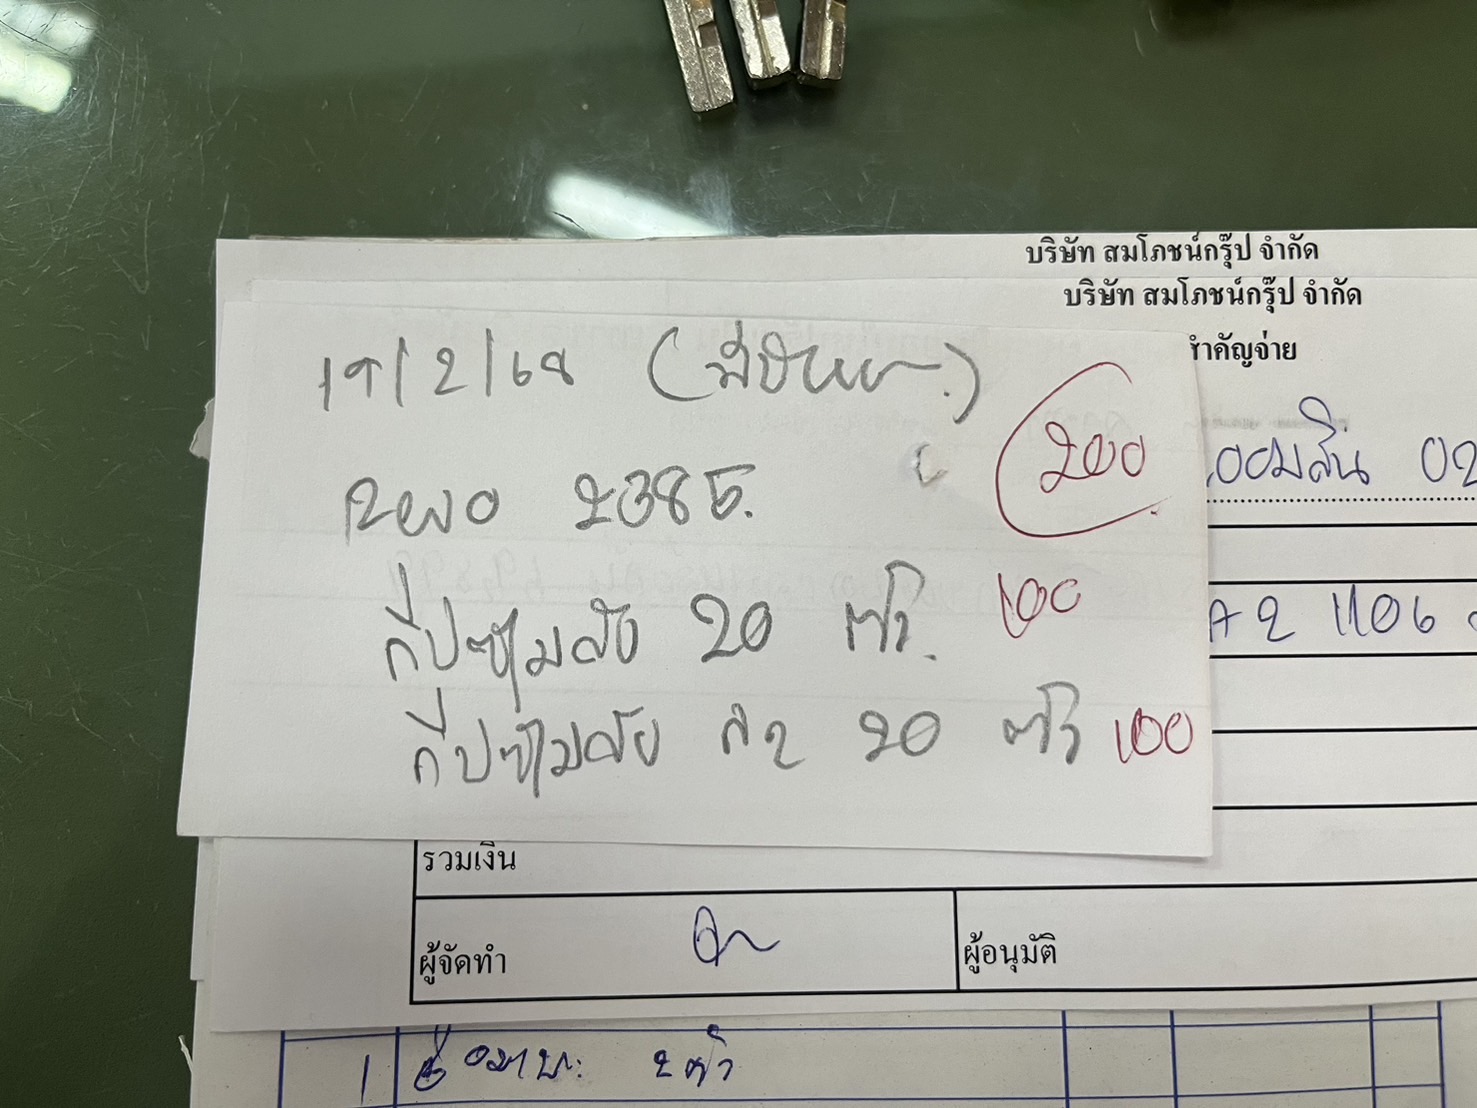 บริษัท สมโภชน์กรุ๊ป จำกัด
บริษัท สมโภชน์กรุ๊ป จำกัด
สำคัญจ่าย
19/2/68 (มีบิล
200
ออมสิน 02
Revo 2385.
1106
กีปซุ้มล้อ 20 ตัว. 100
กีปซุ้มล้อ 20 ตัว 100
รวมเงิน
ผู้จัดทำ
ผู้อนุมัติ
1 2 ตัว